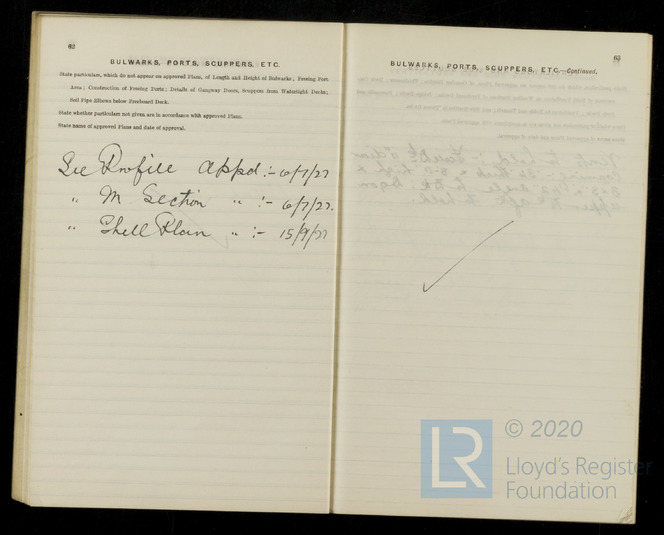 62
BULWARKS, PORTS, SCUPPERS, ETC.
State particulars, which do not appear on approved Plans, of Length and Height of Bulwarks; Freeing Port
Area; Construction of Freeing Ports; Details of Gangway Doors, Scuppers from Watertight Decks;
Soil Pipe Elbows below Freeboard Deck.
State whether particulars not given are in accordance with approved Plans.
State name of approved Plans and date of approval.
See Profile Appd :- 6/7/27
" M Section " :- 6/7/27.
" Shell Plan " :- 15/9/27
63
BULWARKS, PORTS, SCUPPERS, ETC.—Continued.
LR
© 2020
Lloyd's Register
Foundation